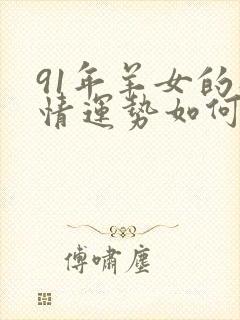 91年羊女的
情運勢如何
傅嘯塵